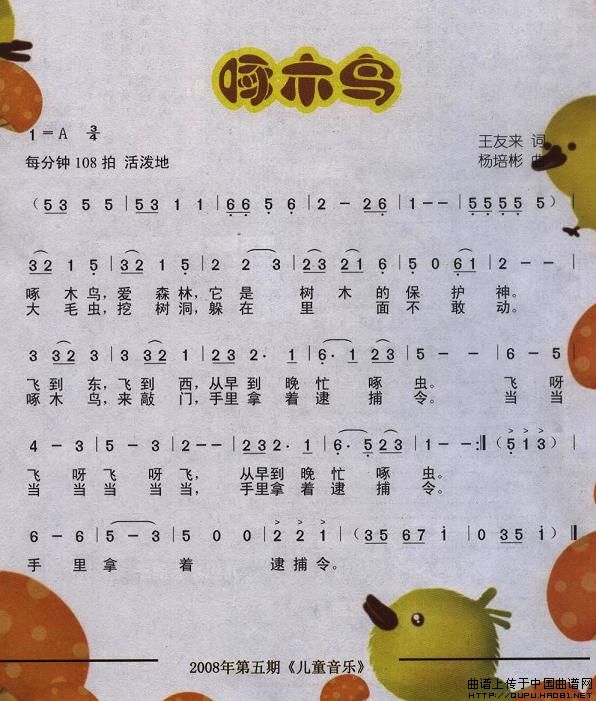 啄木鸟
1=A 3/4
王友来 词
每分钟 108 拍 活泼地
杨培彬 曲
(53 5 5 | 53 1 1 | 66 5 6 | 2 - 26 | 1 - - | 5555 5) |
32 1 5 | 32 1 5 | 2 2 3 | 23 21 6 | 5 0 61 | 2 - - |
啄 木鸟，爱 森林，它 是 树 木 的 保 护 神。
大 毛虫，挖 树洞，躲 在 里 面 不 敢 动。
3 32 3 | 3 32 1 | 232 2· 1 | 6·1 23 | 5 - - | 6 - 5 |
飞 到 东，飞 到 西，从早 到 晚 忙 啄 虫。 飞 呀
啄 木 鸟，来 敲 门，手里 拿 着 逮 捕 令。 当 当
4 - 3 | 5 - 3 | 2 - - | 232 2· 1 | 6·5 23 | 1 - - :‖ (5 1 3) |
飞 呀 飞 呀 飞， 从早到 晚 忙 啄 虫。
当 当 当 当 当， 手里拿 着 逮 捕 令。
6 - 6 | 5 - 3 | 5 0 0 | 2 2 1 | (35 67 i | 0 35 i) ‖
手 里 拿 着 逮 捕 令。
2008年第五期《儿童音乐》
曲谱上传于中国曲谱网
HTTP://QUPU.HAO81.NET